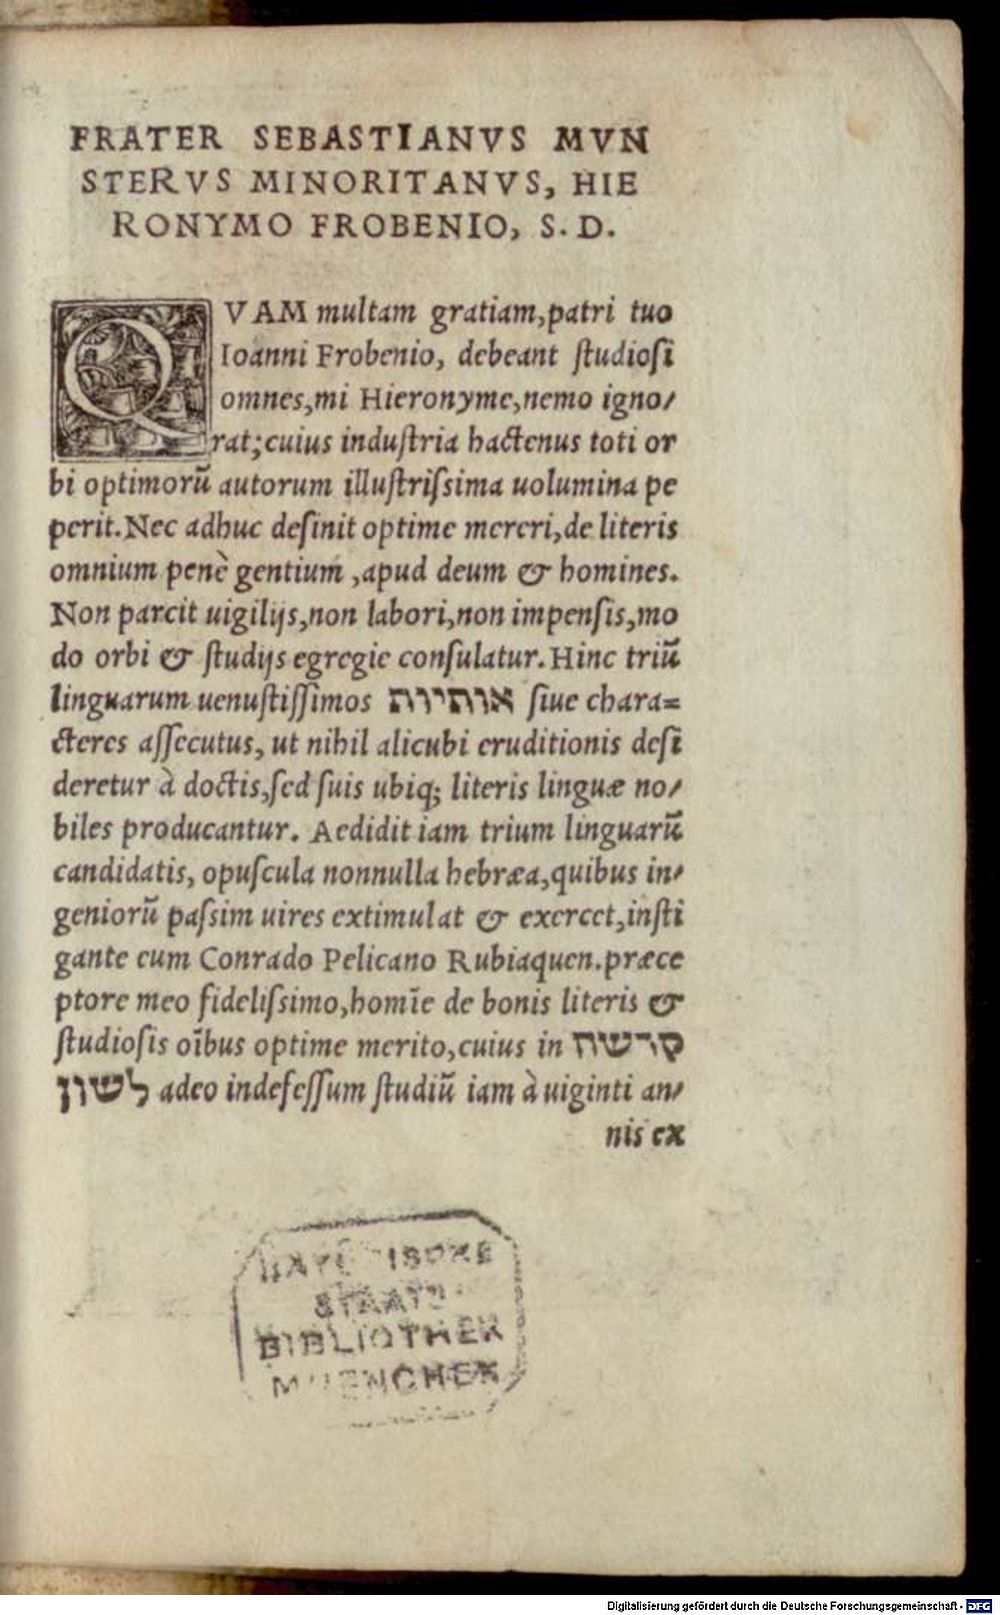 FRATER SEBASTIANVS MVN
STERVS MINORITANVS, HIE
RONYMO FROBENIO, S. D.
QVAM multam gratiam, patri tuo
Ioanni Frobenio, debeant studiosi
omnes, mi Hieronyme, nemo igno⸗
rat; cuius industria hactenus toti or
bi optimorũ autorum illustrissima uolumina pe
perit. Nec adhuc desinit optime mereri, de literis
omnium penè gentium, apud deum & homines.
Non parcit uigilijs, non labori, non impensis, mo
do orbi & studijs egregie consulatur. Hinc triũ
linguarum uenustissimos אותיות siue chara=
cteres assecutus, ut nihil alicubi eruditionis desi
deretur à doctis, sed suis ubiq; literis linguæ no⸗
biles producantur. Aedidit iam trium linguarũ
candidatis, opuscula nonnulla hebræa, quibus in⸗
geniorũ passim uires extimulat & exercet, insti
gante eum Conrado Pelicano Rubiaquen. præce
ptore meo fidelissimo, homĩe de bonis literis &
studiosis oĩbus optime merito, cuius in קדשת
לשון adeo indefessum studiũ iam à uiginti an⸗
nis ex
BAYERISCHE
STAATS
BIBLIOTHEK
MUENCHEN
Digitalisierung gefördert durch die Deutsche Forschungsgemeinschaft - DFG